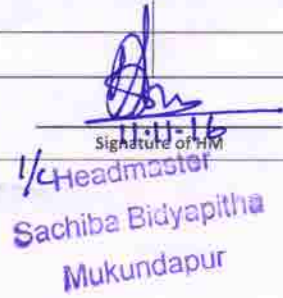 11-11-16
Signature of HM
I/c Headmaster
Sachiba Bidyapitha
Mukundapur